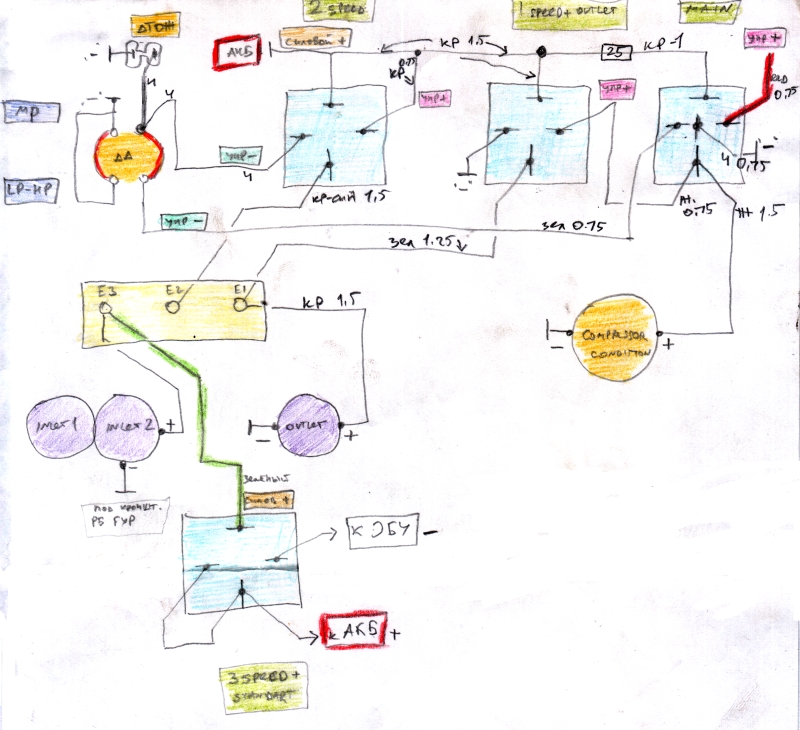 2 SPEED
1 SPEED + OUTLET
MAIN
ДТОЖ
АКБ
СИЛОВОЙ +
КР 1.5
КР 0.75
25
КР-1
УПР+
0.75
УПР+
УПР+
Ч
Ч
МР
ДД
LP-HP
УПР-
Ч
Ч 0,75
КР-СИЙ 1,5
0.75
1.5
УПР-
ЗЕЛ 0.75
ЗЕЛ 1.25
E3
E2
E1
КР 1,5
COMPRESSOR
CONDITION
-
+
INLET 1
INLET 2
+
-
OUTLET
-
+
ПОД КРОНШТ.
РБ ГУР
ЗЕЛЁНЫЙ
К ЭБУ -
К АКБ +
3 SPEED +
STANDART